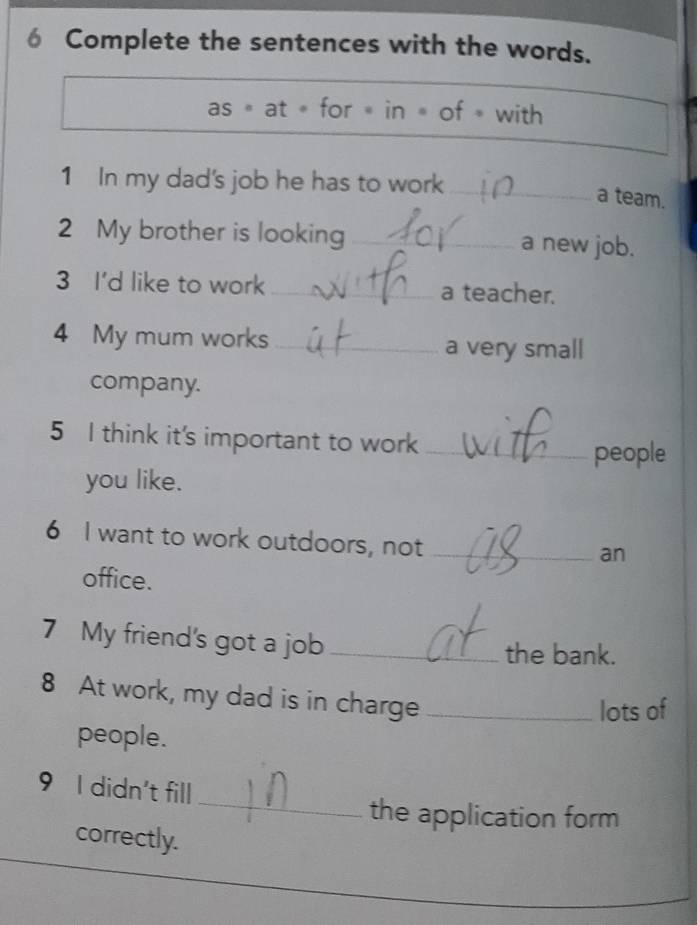 6 Complete the sentences with the words.
as • at • for • in • of • with
1 In my dad's job he has to work in a team.
2 My brother is looking for a new job.
3 I'd like to work with a teacher.
4 My mum works at a very small
company.
5 I think it's important to work with people
you like.
6 I want to work outdoors, not as an
office.
7 My friend's got a job at the bank.
8 At work, my dad is in charge ______ lots of
people.
9 I didn't fill in the application form
correctly.